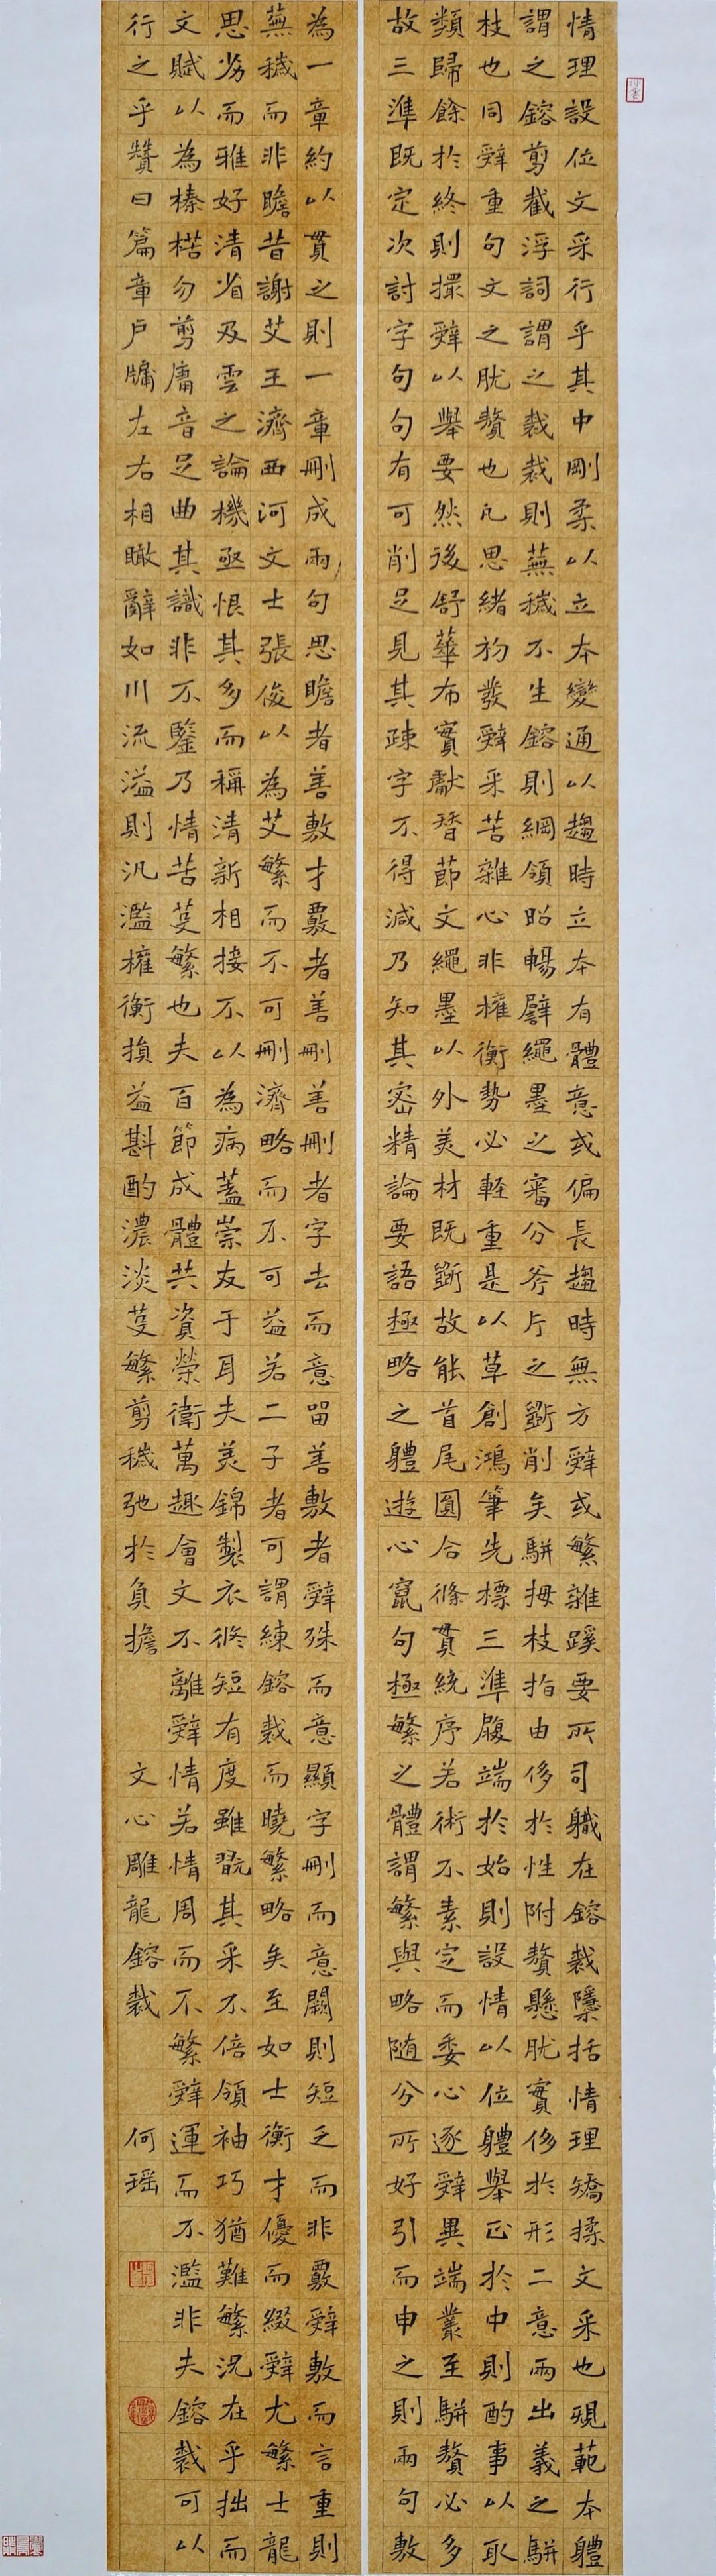 情理設位文采行乎其中剛柔以立本變通以趨時立本有體意或偏長趨時無方辭或繁雜蹊要所司職在鎔裁隱括情理矯揉文采也規範本體
謂之鎔剪截浮詞謂之裁裁則蕪穢不生鎔則綱領昭暢譬繩墨之審分斧斤之斵削矣駢拇枝指由侈於性附贅懸肬實侈於形二意兩出義之駢
枝也同辭重句文之肬贅也凡思緒初發辭采苦雜心非權衡勢必輕重是以草創鴻筆先標三準履端於始則設情以位體舉正於中則酌事以取
類歸餘於終則撮辭以舉要然後舒華布實獻替節文繩墨以外美材既斵故能首尾圓合條貫統序若術不素定而委心逐辭異端叢至駢贅必多
故三準既定次討字句句有可削足見其疎字不得減乃知其密精論要語極略之體遊心竄句極繁之體謂繁與略随分所好引而申之則兩句敷
為一章約以貫之則一章刪成兩句思贍者善敷才覈者善刪善刪者字去而意留善敷者辭殊而意顯字刪而意闕則短乏而非覈辭敷而言重則
蕪穢而非贍昔謝艾王濟西河文士張俊以為艾繁而不可刪濟略而不可益若二子者可謂練鎔裁而曉繁略矣至如士衡才優而綴辭尤繁士龍
思劣而雅好清省及雲之論機亟恨其多而稱清新相接不以為病蓋崇友于耳夫美錦製衣修短有度雖翫其采不倍領袖巧猶難繁況在乎拙而
文賦以為榛楛勿剪庸音足曲其識非不鑒乃情苦芟繁也夫百節成體共資榮衛萬趣會文不離辭情若情周而不繁辭運而不濫非夫鎔裁可以
行之乎贊曰篇章戶牖左右相瞰辭如川流溢則汎濫權衡損益斟酌濃淡芟繁剪穢弛於負擔 文心雕龍鎔裁 何瑶